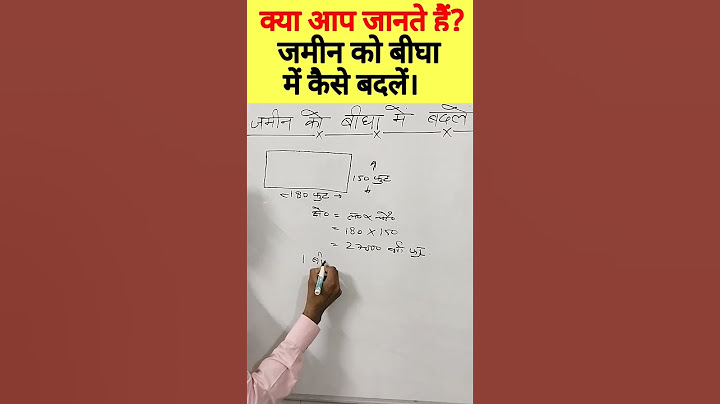 क्या आप जानते हैं?
जमीन को बीघा
में कैसे बदलें।
जमीन को बीघा में बदले
150 फुट
180 फुट
क्षे० = ल० x चौ०
= 180 x 150
= 27000 वर्ग फुट
1 बी